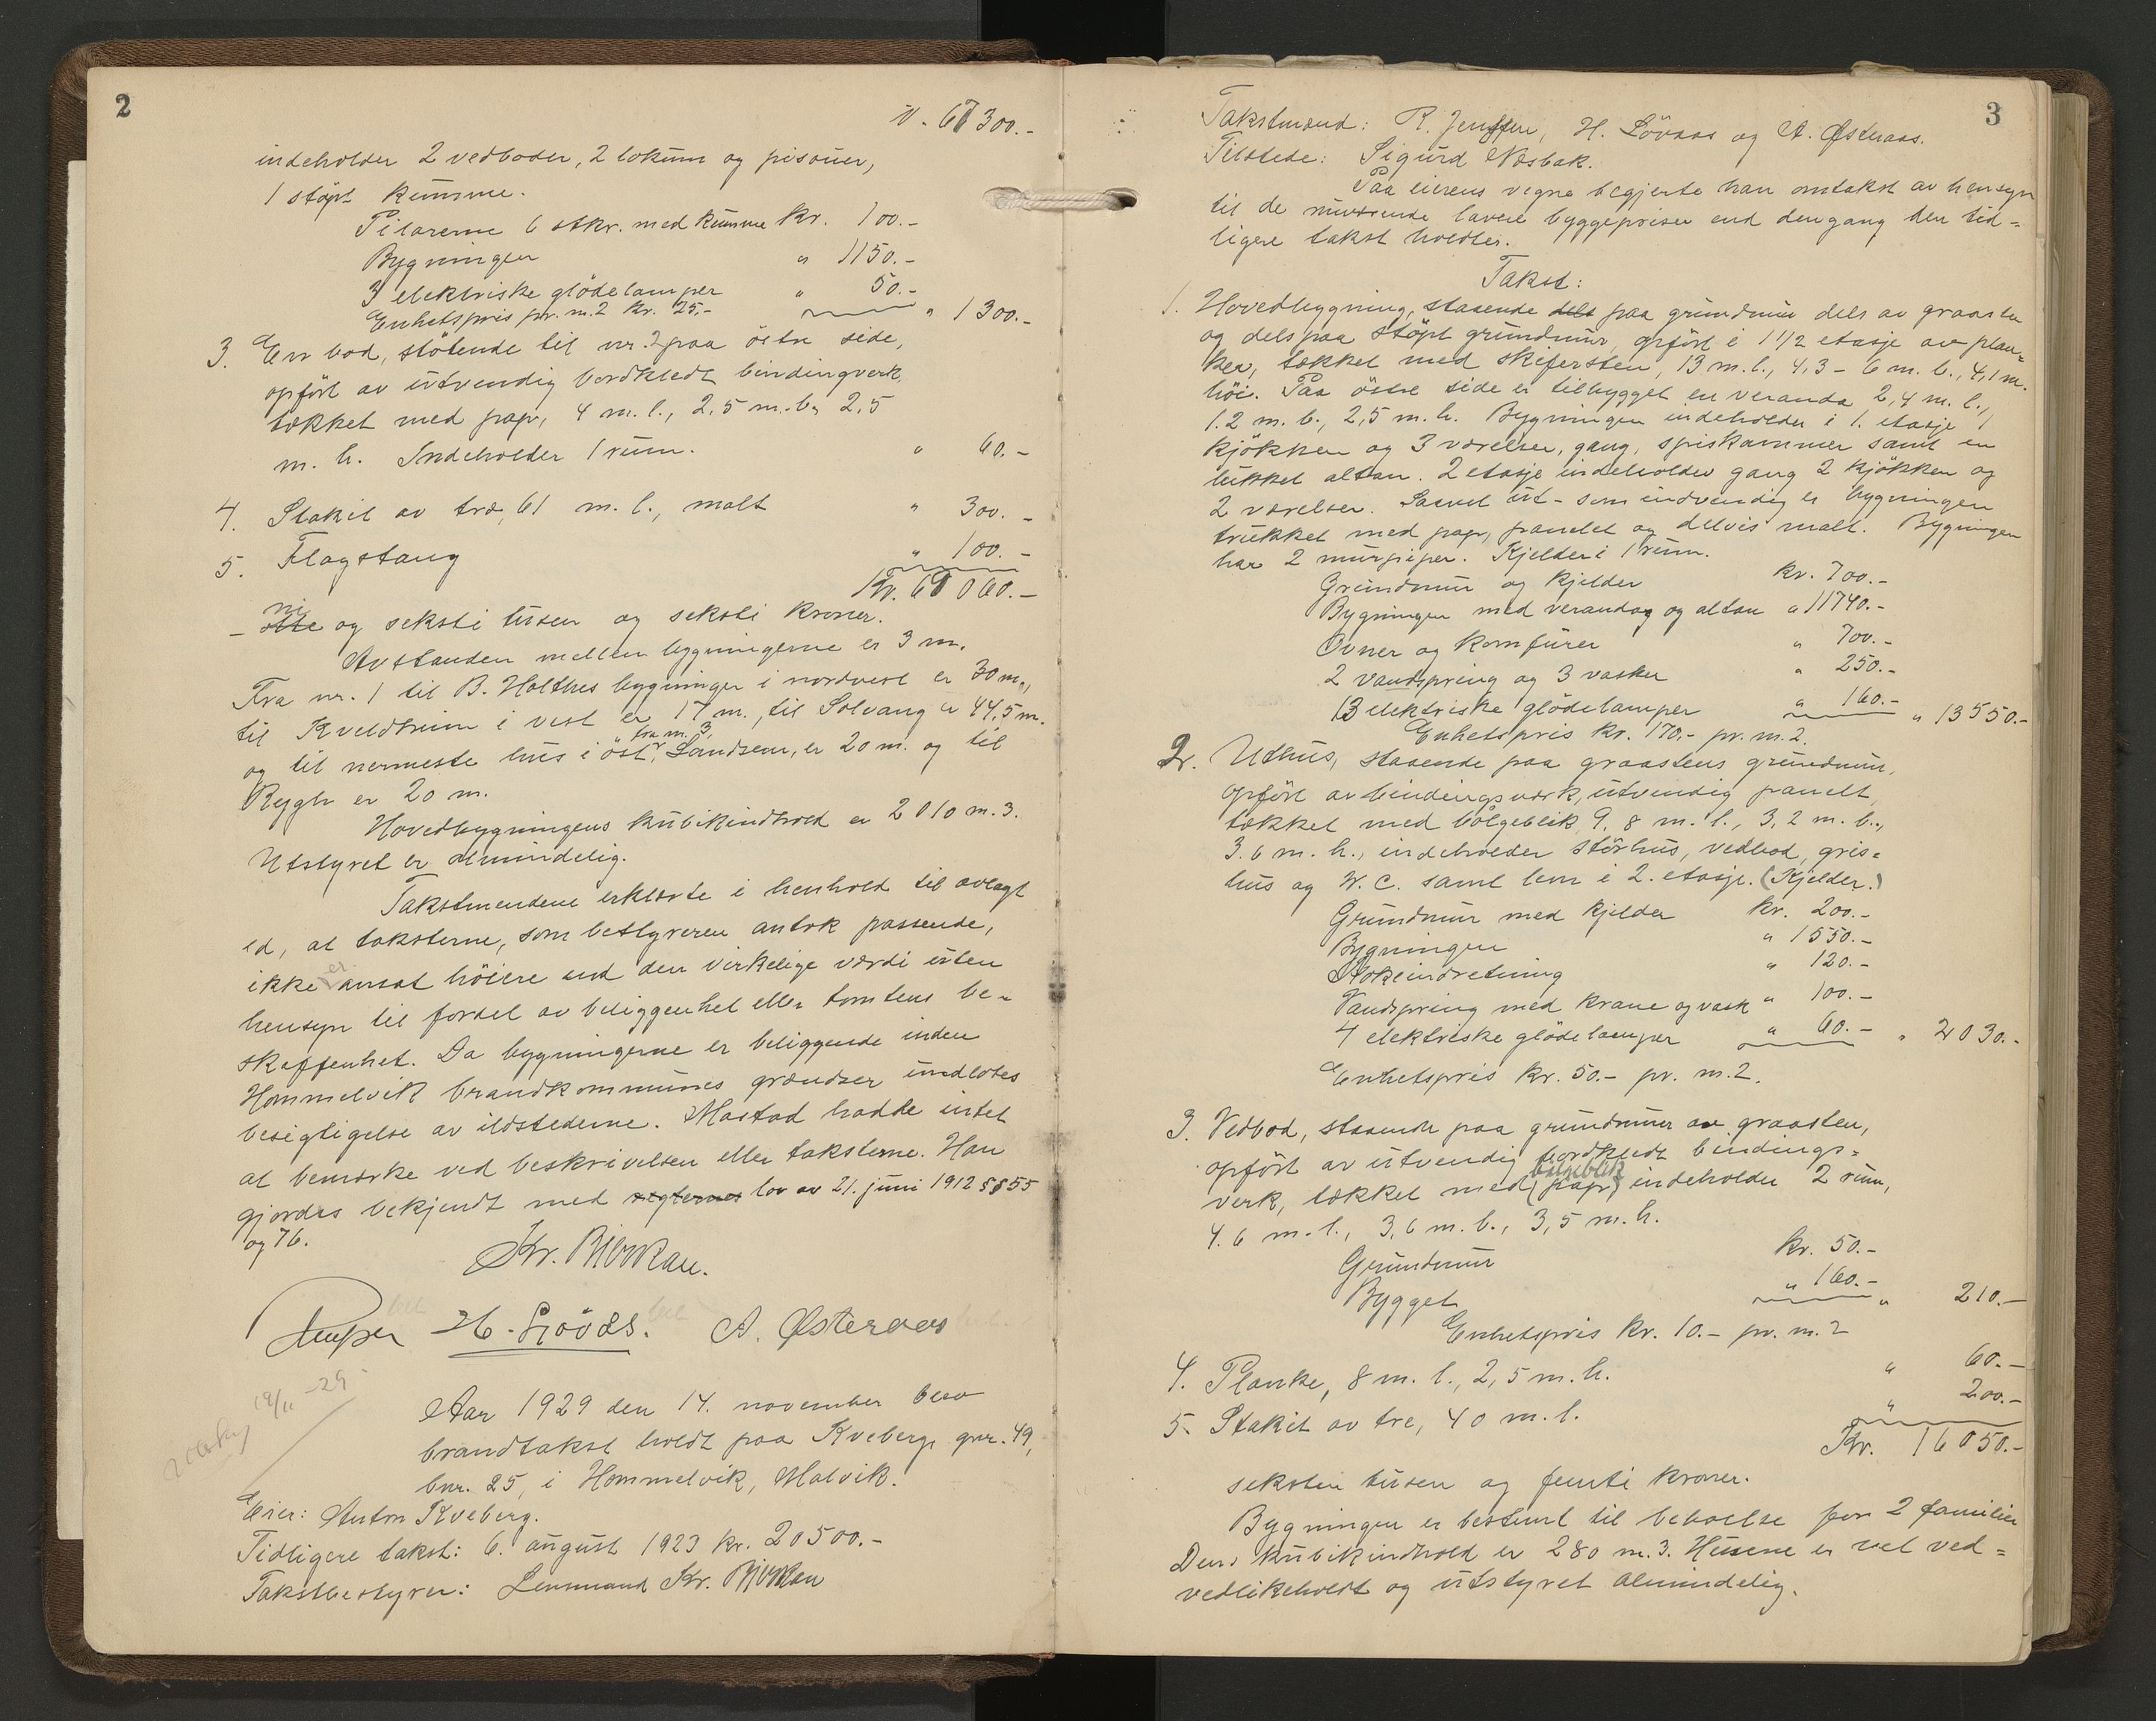 2
N. 67300.-
indeholder 2 vedboder, 2 lokum og pisouer,
1 støpt kumme.
Pilarerne 6 stkr. med kumme Kr. 100.-
Bygningen " 1150.-
3 elektriske glödelamper " 50.-
Enhetspris pr. m.2 kr. 25,- " 1300.-
3. En bod, stötende til nr. 2 paa östre side,
opfört av utvendig bordkledt bindingverk,
tækket med pap, 4 m. l., 2,5 m. b., 2,5
m. h. Indeholder 1 rum. " 60.-
4. Stakit av træ, 61 m. l., malt " 300.-
5. Flagstang " 100.-
Kr. 69060.-
ni
- otte og seksti tusen og seksti kroner.
Avstanden mellen bygningerne er 3 m.
Fra nr. 1 til B. Holthes bygninger i nordvest er 30 m.,
til Kveldheim i vest er 17 m., til Solvang er 44,5 m.
fra nr. 3,
og til nermeste hus i öst, Landsem, er 20 m. og til
Rygh er 20 m.
Hovedbygningens kubikindhold er 2010 m.3.
Utstyret er almindelig.
Takstmendene erklærte i henhold til avlagt
ed, at taksterne, som bestyreren antok passende,
er
ikke ansat höiere end den virkelige værdi uten
hensyn til fordel av beliggenhet eller tomtens be-
skaffenhet. Da bygningerne er beliggende inden
Hommelvik brandkommunes grændser undlotes
besigtigelse av ildstederne. Mostad hadde intet
at bemærke ved beskrivelsen eller taksterne. Han
gjordes bekjendt med reglernes lov av 21. juni 1912 §§ 55
og 76.
Kr. Bjerkan.
H. Løvås. A. Østeraas
Aar 1929 den 14. november blev
brandtakst holdt paa Kveberg, gnr. 49,
bnr. 25, i Hommelvik, Malvik.
19/11 -29
Eier: Anton Kveberg.
Tidligere takst: 6. august 1923 kr. 20500.-
Takstbestyrer: Lensmand Kr. Bjerkan
3
Takstmænd: R. Jenssen, H. Lövaas og A. Østeraas.
Tilstede: Sigurd Næsbak.
Paa eierens vegne begjerte han omtakst av hensyn
til de nuværende lavere byggepriser end dengang den tid=
ligere takst holdtes.
Takst:
1. Hovedbygning, staaende dels paa grundmur dels av graasten
og dels paa støpt grundmur, opført i 1 1/2 etasje av plan=
ker, tækket med skifersten, 13 m. l., 4,3 - 6 m. b., 4,1 m.
høi. Paa östre side er tilbygget en veranda 2,4 m. l.,
1.2 m. b., 2,5 m. h. Bygningen indeholder i 1. etasje 1
kjökken og 3 værelser, gang, spiskammer samt en
lukket altan. 2 etasje indeholder gang 2 kjökken og
2 værelser. Saavel ut- som indvendig er bygningen
trukket med pap, panelet og delvis malt. Bygningen
har 2 murpiper. Kjelder i 1 rum.
Grundmur og kjelder kr. 700.-
Bygningen med veranda og altan " 11740.-
Ovner og komfurer " 700.-
2 vandspring og 3 vasker " 250.-
13 elektriske glödelamper " 160.- " 13550.-
Enhetspris kr. 170,- pr. m.2.
2. Uthus, staaende paa graastens grundmur,
opfört av bindingsverk, utvendig panelt,
tækket med bølgeblik, 9,8 m. l., 3,2 m. b.,
3.6 m. h., indeholder störhus, vedbod, gris=
hus og W. C. samt lem i 2. etasje. (Kjelder.)
Grundmur med kjelder kr. 200.-
Bygningen " 1550.-
Kokeindretning " 120.-
Vandspring med krane og vask " 100.-
4 elektriske glödelamper " 60.- " 2030.-
Enhetspris kr. 50.- pr. m.2.
3. Vedbod, staaende paa grundmur av graasten,
opfört av utvendig bordkledt bindings=
bølgeblik
verk, tækket med (pap) indeholder 2 rum,
4.6 m. l., 3,6 m. b., 3,5 m. h.
Grundmur kr. 50.-
Bygget " 160.- " 210.-
Enhetspris kr. 10.- pr. m.2
4. Planke, 8 m. l., 2,5 m. h. " 60.-
5. Stakit av tre, 40 m. l. " 200.-
Kr. 16050.-
seksten tusen og femti kroner.
Bygningen er bestemt til beboelse for 2 familier
Dens kubikindhold er 280 m.3. Husene er vel ved=
vedlikeholdt og utstyret almindelig.